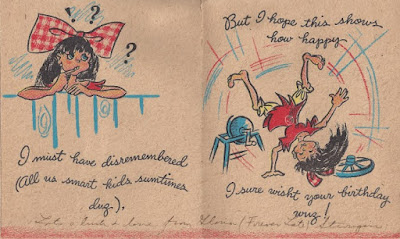 ? ? ?
I must have disremembered
(all us smart kids sumtimes
duz).
But I hope this shows
how happy
I sure wisht your birthday
wuz!
Lots love from (Forever